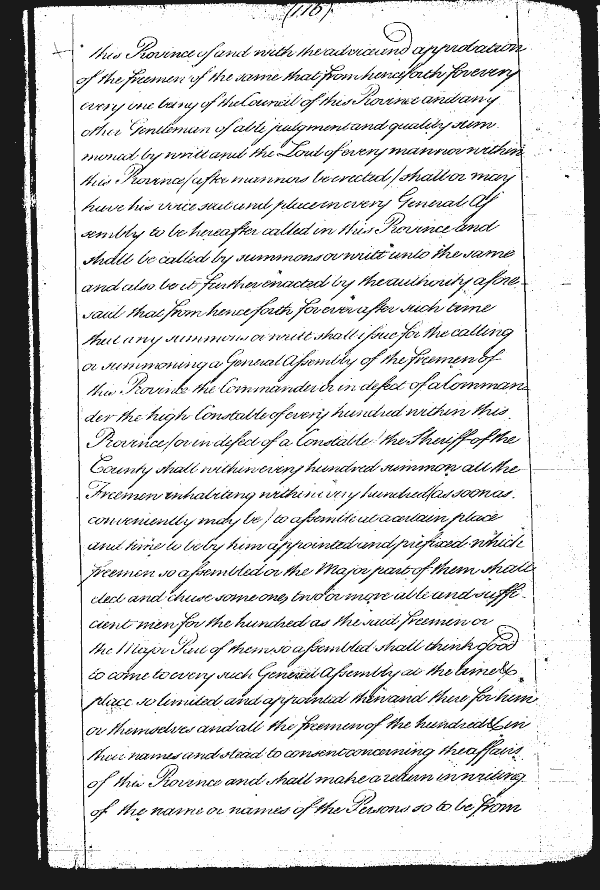 (116)
this Province of and with the advice and approbation
of the freemen of the same that from henceforth for every
every one being of the Council of this Province and any
other Gentlemen of able judgment and quality sum
moned by writt and the Lord of every mannor within
this Province (after mannors be erected) shall or may
have his voice seat and place in every General Asᐧ
sembly to be hereafter called in this Province and
shall be called by summons or writt unto the same
and also be it further enacted by the authority afore-
said that from henceforth forever after such time
that any summons or writt shall issue for the calling
or summoning a General Assembly of the freemen of
this Province the Commander or in defect of a Comman
der the high Constable of every hundred within this
Province (or in defect of a Constable) the Sheriff of the
County shall within every hundred summon all the
Freemen inhabiting within every hundred (as soon as
conveniently may be) to assemble at a certain place
and time to be by him appointed and prefixed which
freemen so assembled or the Major part of them shall
elect and chuse some one, two or more able and suffi-
cient men for the hundred as the said freemen or
the Major Part of them so assembled shall think good
to come to every such General Assembly at the time &
place so limited and appointed then and there for him
or themselves and all the freemen of the hundred & in
their names and stead to consent concerning the affairs
of this Province and shall make a return in writing
of the name or names of the Persons so to be from